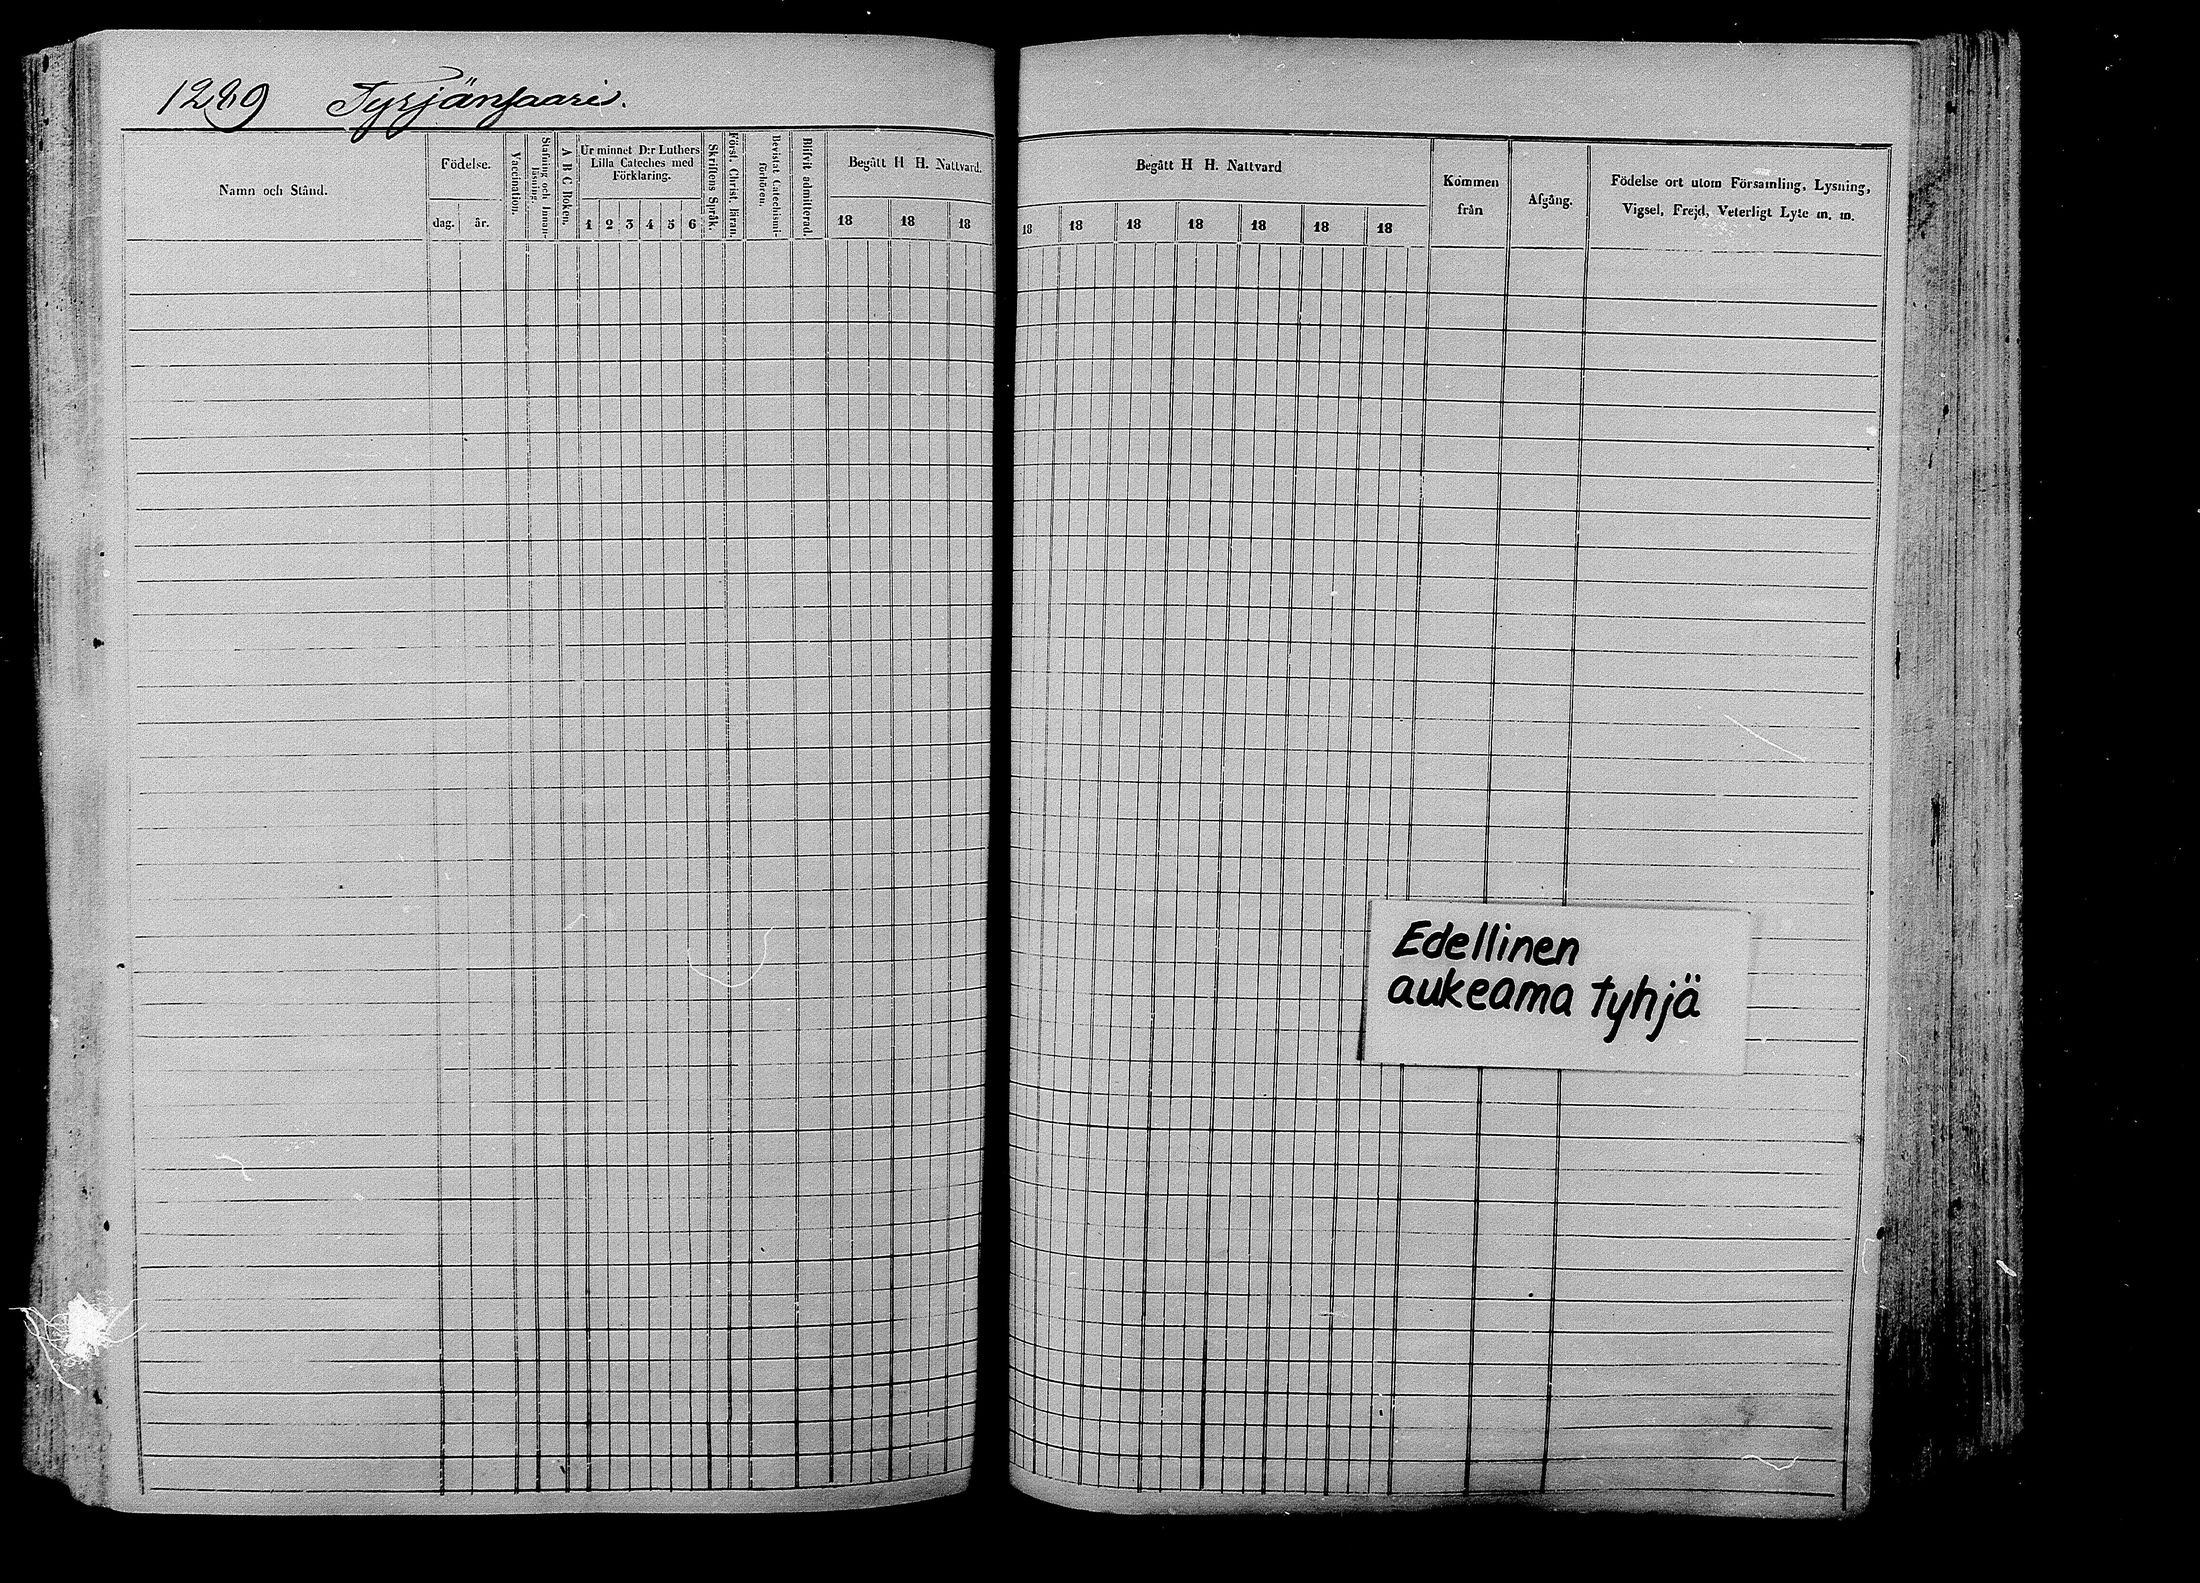 1289 Tyrjänsaari.
Namn och Stånd.
Födelse.
dag. år.
Vaccination.
Stafning och Innan-
läsning.
A B C Boken.
Ur minnet D:r Luthers
Lilla Cateches med
Förklaring.
1 2 3 4 5 6
Skriftens Språk.
Först. Christ. läran.
Bevistat Catechismi-
förhören.
Blifvit admitterad.
Begått H H. Nattvard.
18 18 18
Begått H H. Nattvard
18 18 18 18 18 18 18
Kommen
från
Afgång.
Födelse ort utom Församling, Lysning,
Vigsel, Frejd, Veterligt Lyte m. m.
Edellinen
aukeama tyhjä